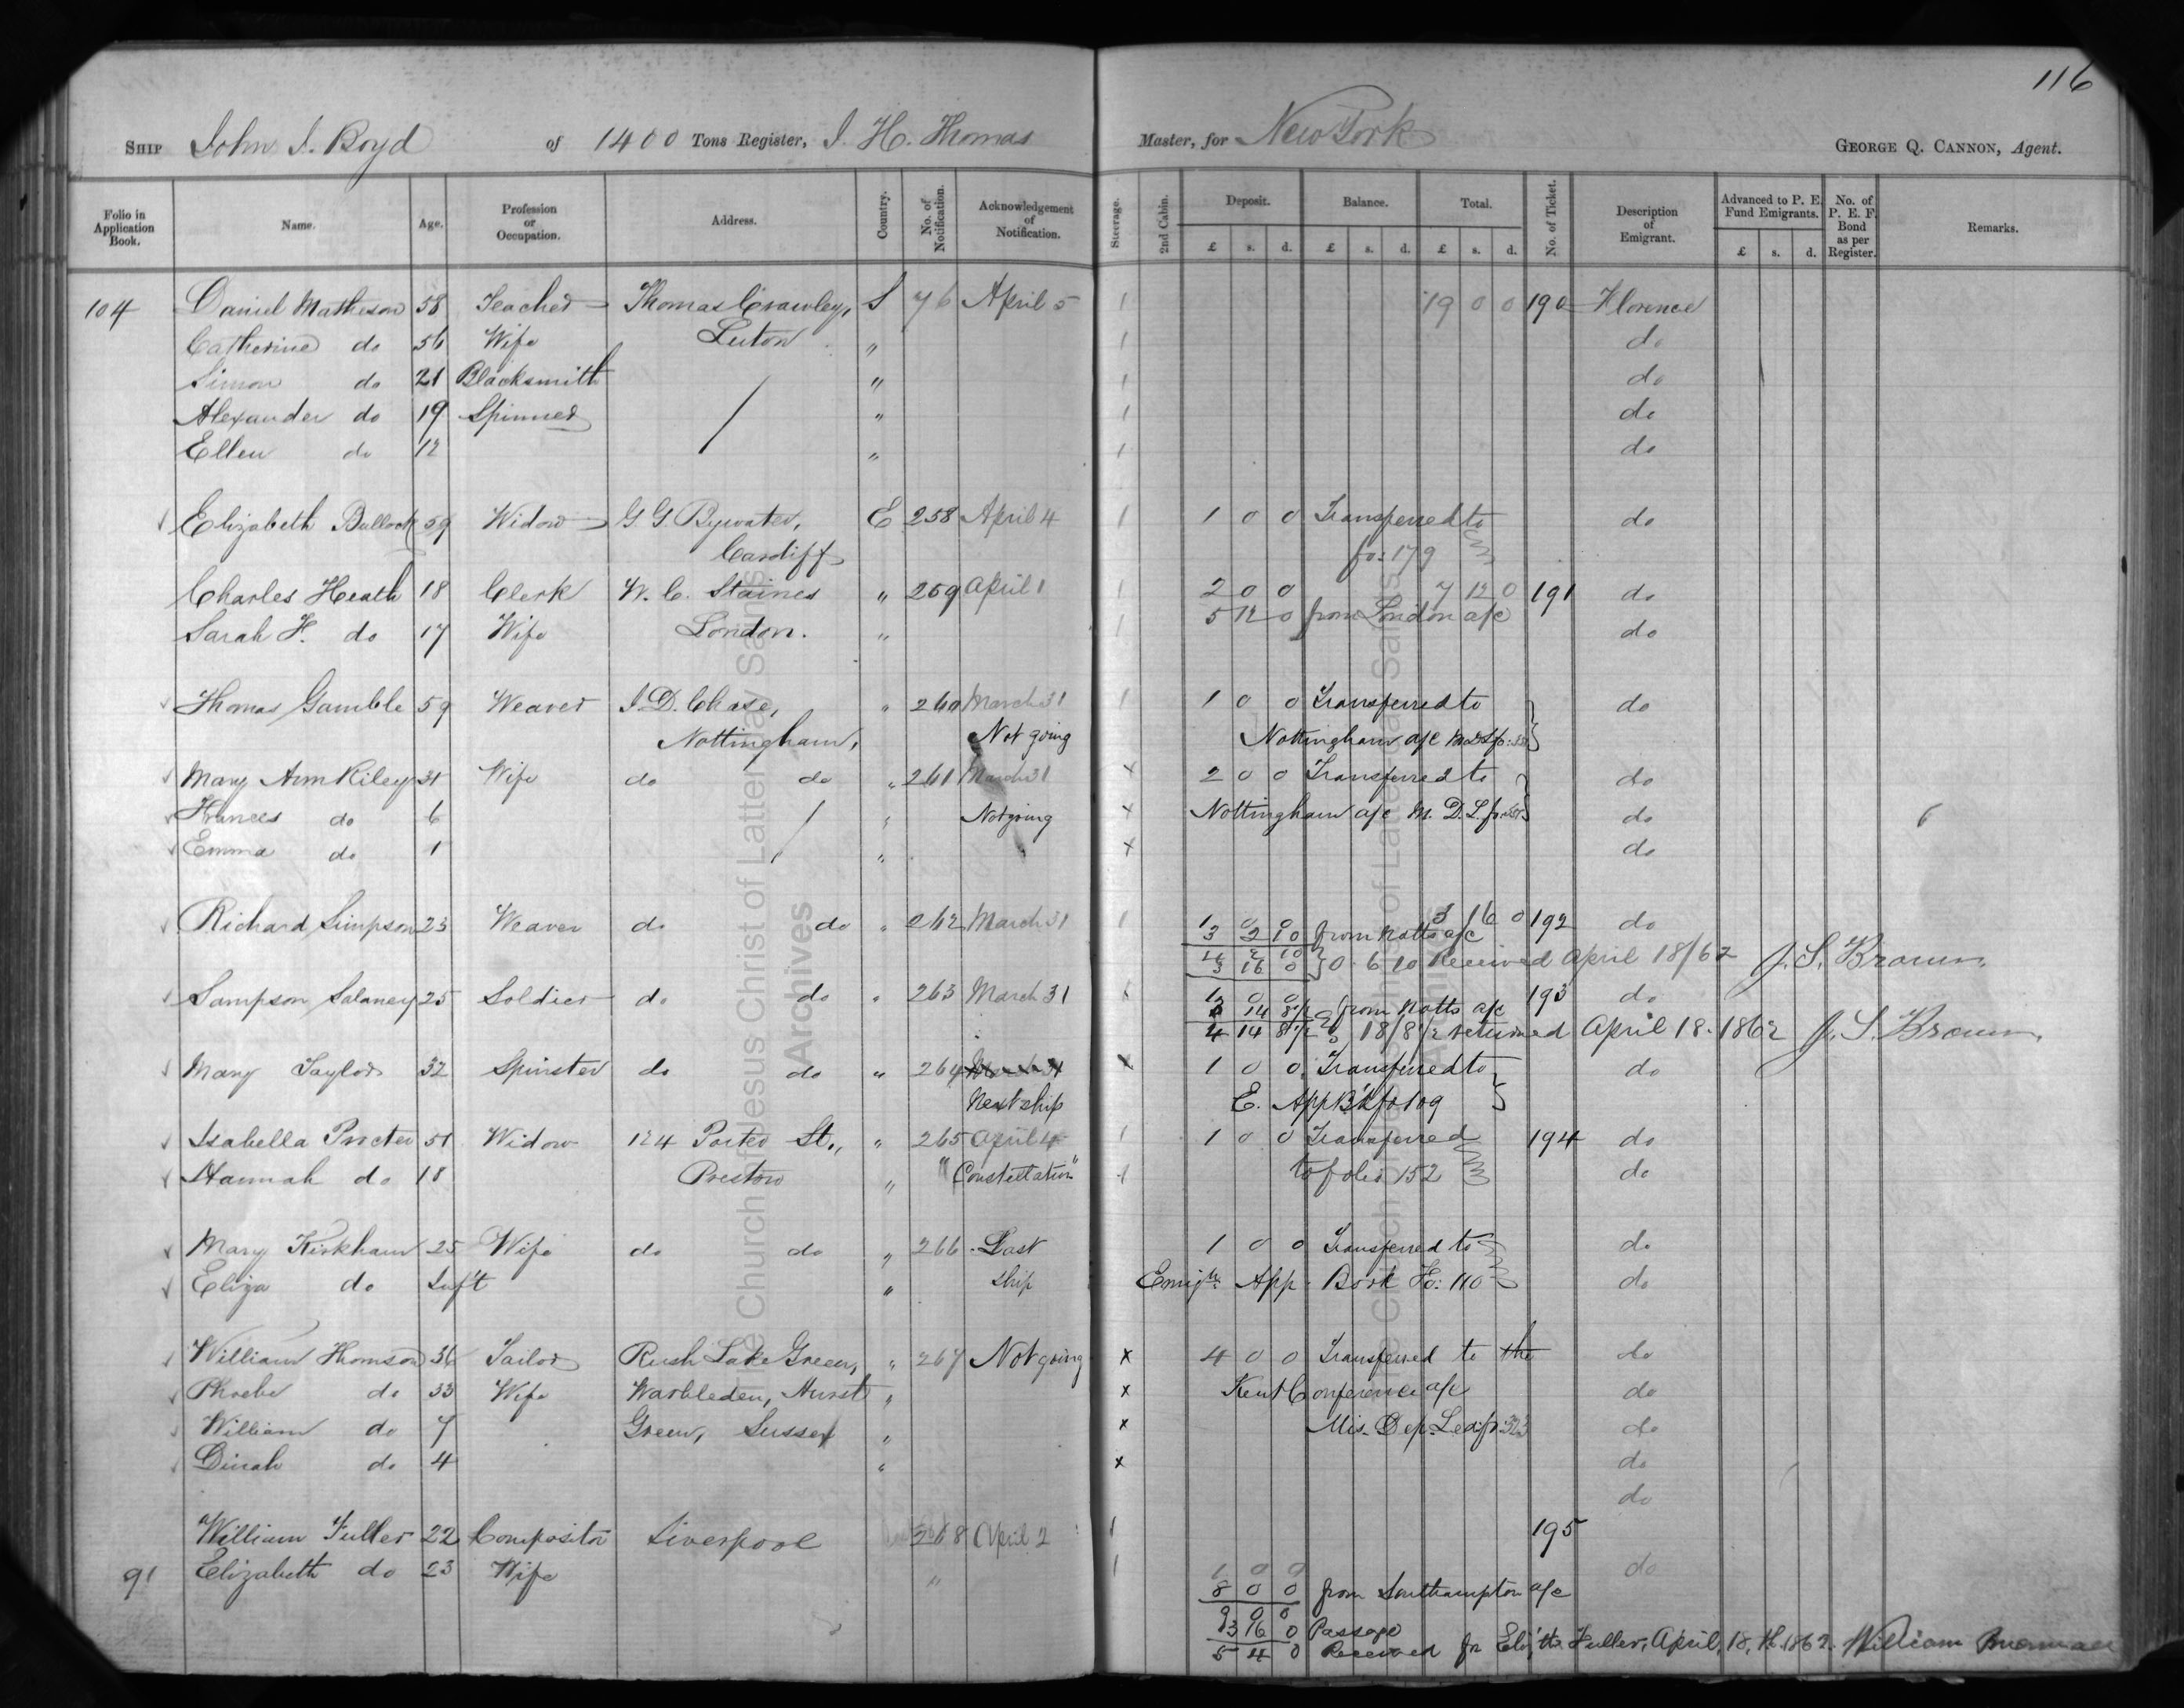 116
SHIP John J. Boyd of 1400 Tons Register, J. H. Thomas Master, for New York GEORGE Q. CANNON, Agent.
Folio in Application Book. Name. Age. Profession or Occupation. Address. Country. No. of Notification. Acknowledgement of Notification. Steerage. 2nd Cabin. Deposit. £ s. d. Balance. £ s. d. Total. £ s. d. No. of Ticket. Description of Emigrant. Advanced to P. E. Fund Emigrants. £ s. d. No. of P. E. F. Bond as per Register. Remarks.
104 Daniel Matheson 58 Teacher Thomas Crawley, S 76 April 5 1 19 0 0 190 Florence
Catherine do 56 Wife Luton " 1 do
Simon do 21 Blacksmith " 1 do
Alexander do 19 Spinner " 1 do
Ellen do 12 " 1 do
Elizabeth Bullock 59 Widow G G Bywater, E 258 April 4 1 1 0 0 Transferred to do
Cardiff fo: 179
Charles Heath 18 Clerk W. C. Staines " 259 April 1 1 2 0 0 7 12 0 191 do
Sarah H. do 17 Wife London. " 1 5 12 0 from London a/c do
Thomas Gamble 59 Weaver J. D. Chase, " 260 March 31 1 1 0 0 Transferred to do
Nottingham, Not going Nottingham a/c M D L fo:
Mary Ann Riley 31 Wife do do " 261 March 31 x 2 0 0 Transferred to do
Frances do 6 " Not going x Nottingham a/c M. D. L. fo: do
Emma do 1 " x do
Richard Simpson 23 Weaver do do " 262 March 31 1 1 0 0 3 16 0 192 do
3 2 10 from Notts a/c
4 2 10
3 16 0 } 0 6 10 Received April 18/62 J. S. Brown.
Sampson Salaney 25 Soldier do do " 263 March 31 1 0 0 193 do
14 8½ from Notts a/c
4 14 8½ 18/8½ returned April 18. 1862 J. S. Brown.
Mary Taylor 32 Spinster do do " 264 March 31 x 1 0 0 Transferred to do
Next ship E. App B'k fo 109
Isabella Procter 51 Widow 124 Porter St., " 265 April 4 1 1 0 0 Transferred 194 do
Hannah do 18 Preston " "Constellation" 1 to folio 152 do
Mary Kirkham 25 Wife do do " 266 Last 1 0 0 Transferred to do
Eliza do Inf't " ship Emig'n App. Book Fo: 110 do
William Thomson 36 Tailor Rush Lake Green, " 267 Not going x 4 0 0 Transferred to the do
Phoebe do 33 Wife Warbleden, Hurst " x Kent Conference a/c do
William do 7 Green, Sussex " x Mis. Dep. Led. fo 323 do
Dinah do 4 " x do
do
William Fuller 22 Compositor Liverpool 268 April 2 1 195
91 Elizabeth do 23 Wife " 1 1 0 0 do
8 0 0 from Southampton a/c
9 0 0
3 16 0 Passage
5 4 0 Received for Eliz'th Fuller, April, 18, th. 1862. William
The Church of Jesus Christ of Latter-day Saints
Archives
The Church of Jesus Christ of Latter-day Saints
Archives